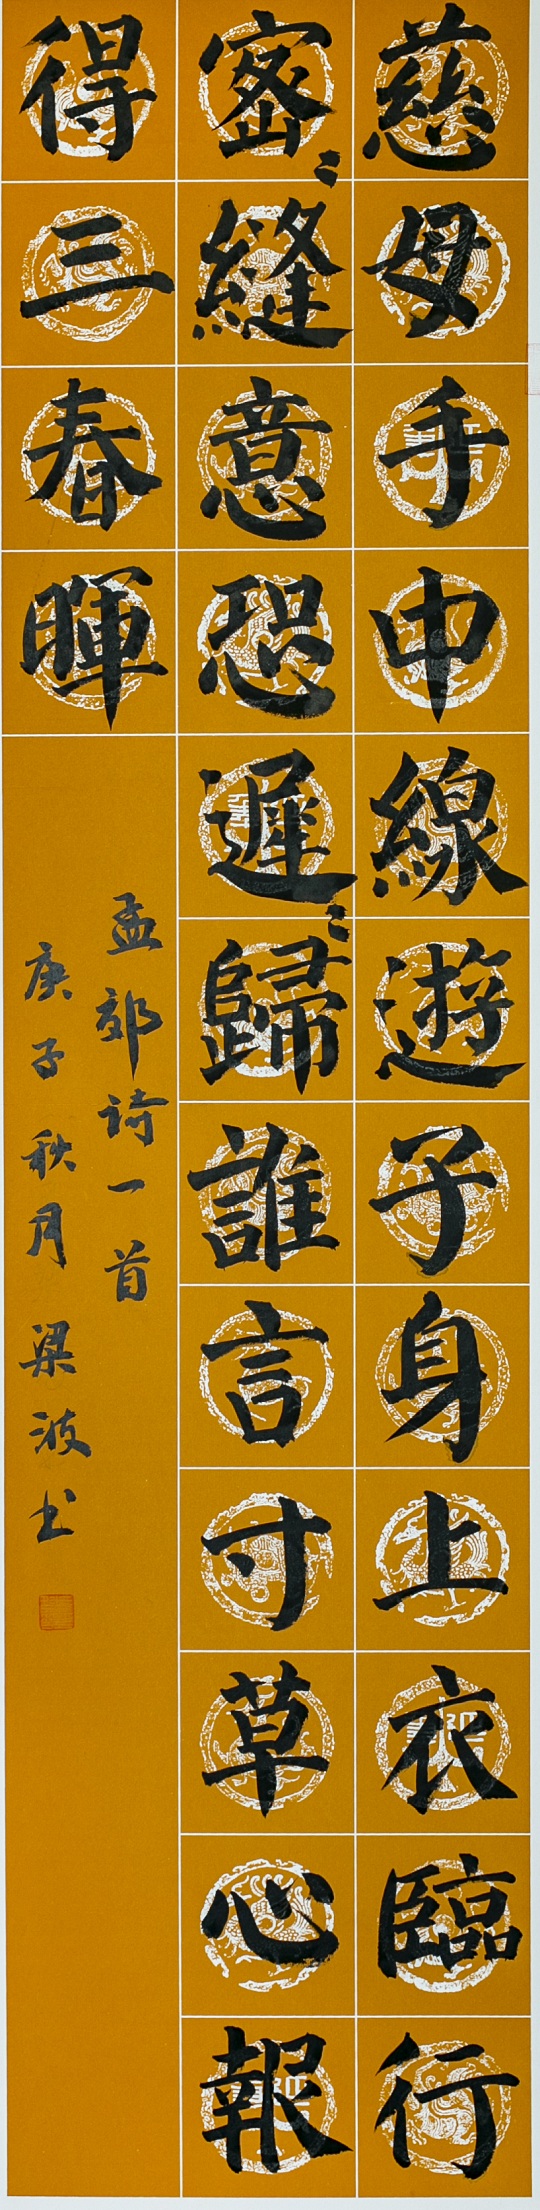 慈母手中線遊子身上衣臨行
密〻縫意恐遲〻歸誰言寸草心報
得三春暉
孟郊诗一首
庚子秋月梁波书